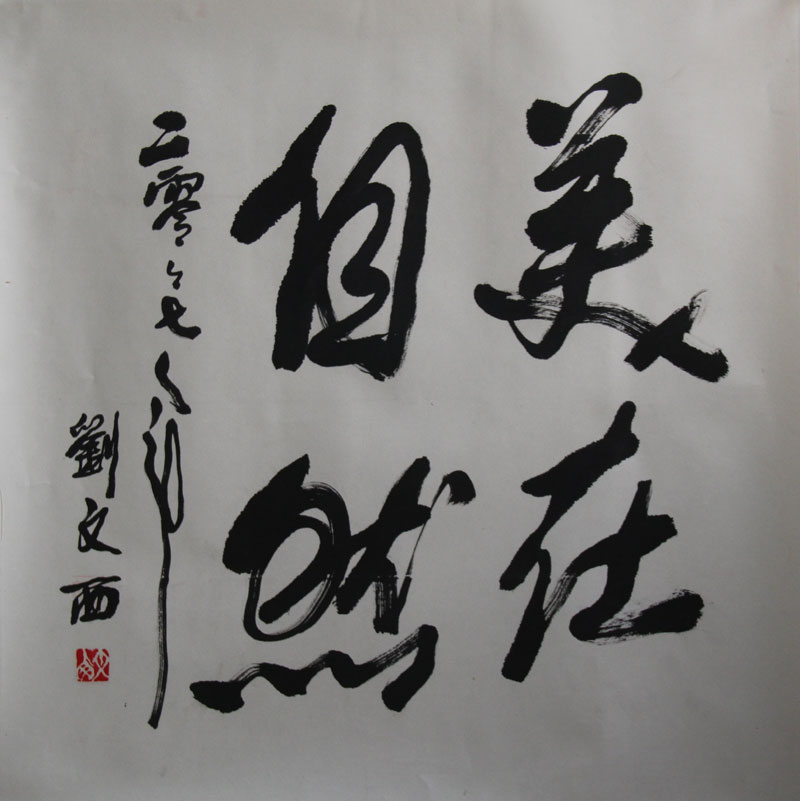 美在
自然
二零零七年
劉文西